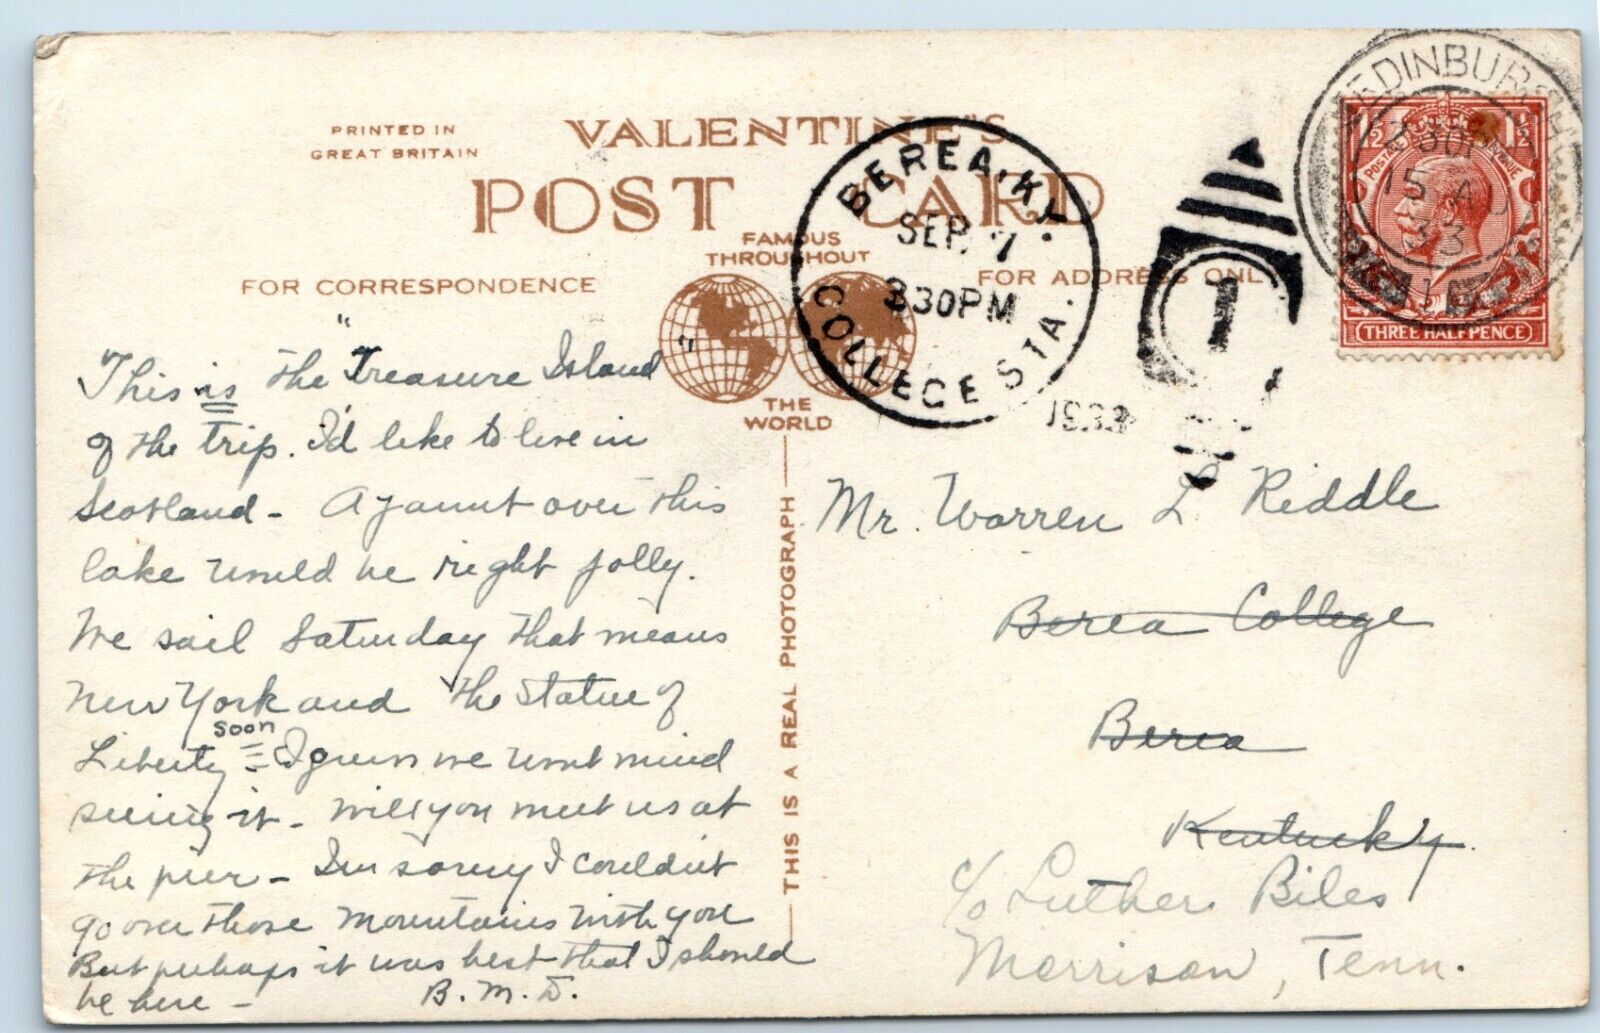 PRINTED IN
GREAT BRITAIN
VALENTINE'S
POST CARD
FAMOUS
THROUGHOUT
THE
WORLD
FOR CORRESPONDENCE
FOR ADDRESS ONLY
THIS IS A REAL PHOTOGRAPH
BEREA, KY.
SEP 7
330PM
COLLEGE STA.
1933
1
EDINBURGH
2 30P
15 AU
33
1½
1½
POSTAGE
REVENUE
THREE HALFPENCE
This is the "Treasure Island"
of the trip. I'd like to live in
Scotland - A jaunt over this
lake would be right jolly.
We sail Saturday that means
New York and the Statue of
Liberty soon I guess we wont mind
seeing it - Will you meet us at
the pier - I'm sorry I couldn't
go over those mountains with you
But perhaps it was best that I should
be here - B. M. D.
Mr. Warren L. Riddle
Berea College
Berea
Kentucky.
c/o Luther Biles
Morrison, Tenn.